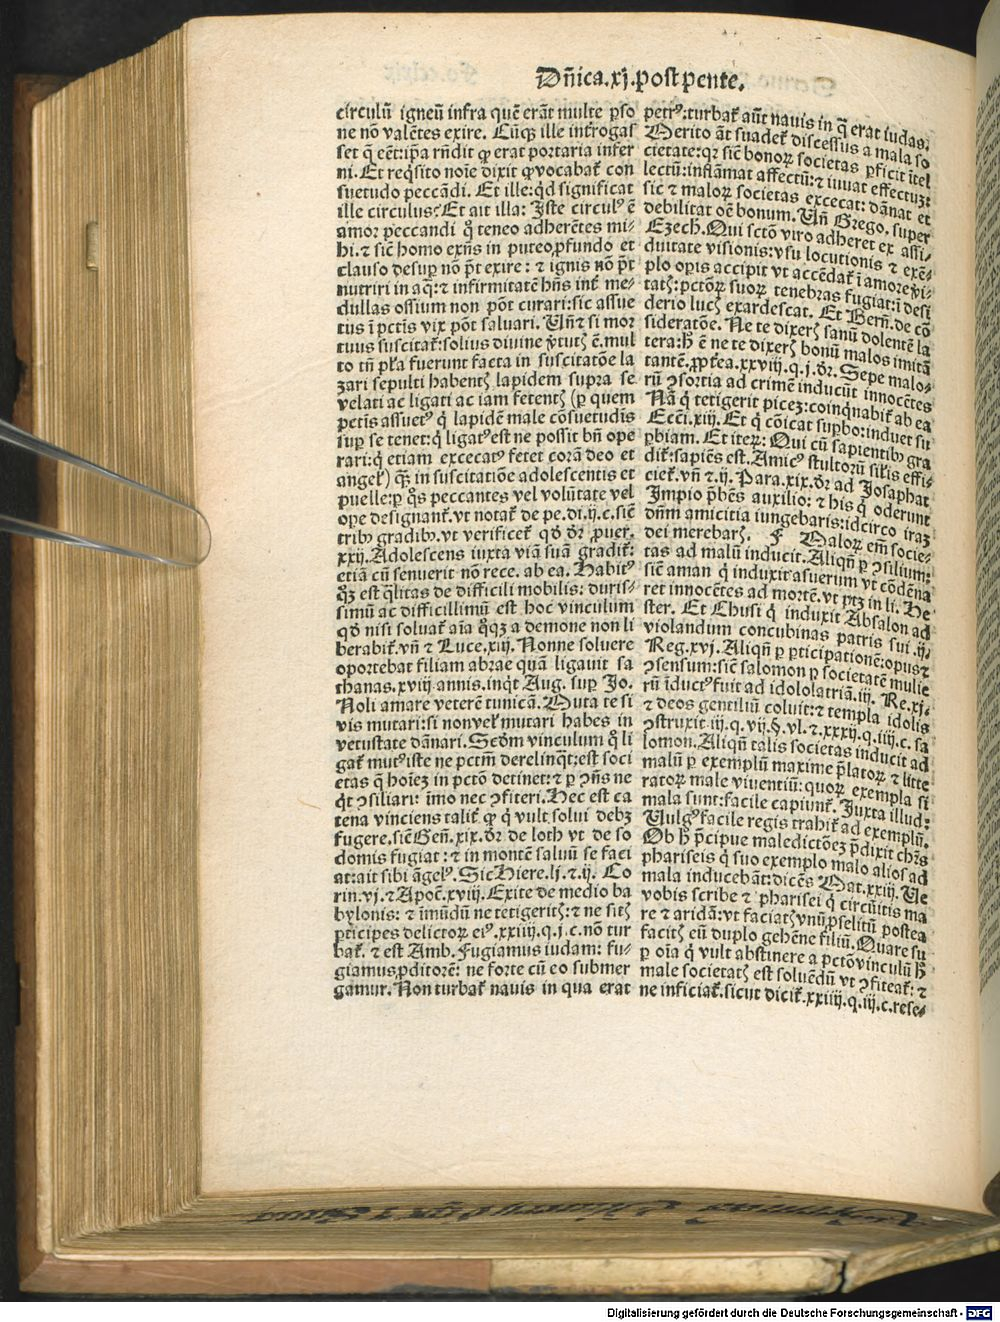 Dñica.xj.post pente.
circulū igneū infra quē erāt multe ꝑso
ne nō valētes exire. Cūqꝫ ille introgas
set q̄ eēt: ip̄a rñdit ꝙ erat portaria infer
ni. Et reqͥsito noīe dixit ꝙ vocabat̄ con
suetudo peccādi. Et ille: qͥd significat
ille circulus? Et ait illa: Iste circulꝰ ē
amor peccandi qͦ teneo adherētes mi-
hi. ⁊ sic̄ homo exn̄s in puteo ꝓfundo et
clauso desuꝑ nō pōt exire: ⁊ ignis nō pōt
nutriri in aq̄: ⁊ infirmitatē hn̄s int̄ me-
dullas ossium non pōt curari: sic assue
tus ī pctīs vix pōt saluari. Un̄ ⁊ si mor
tuus suscitat̄: solius diuine v̓tutꝭ ē. mul
to tn̄ pl̓a fuerunt facta in suscitatōe la
zari sepulti habentꝭ lapidem supra se
velati ac ligati ac iam fetentꝭ (ꝑ quem
pctīs assuetꝰ qͥ lapidē male cōsuetudīs
suꝑ se tenet: qͥ ligatꝰ est ne possit bn̄ ope
rari: qͥ etiam excecatꝰ fetet corā deo et
angel̓) qꝫ in suscitatiōe adolescentis et
puelle: ꝑ qͦs peccantes vel volūtate vel
ope designant̄. vt notat̄ de pe. di. ij. c. sic̄
tribꝰ gradibꝰ. vt verificet̄ qđ dr̄ ꝓuer.
xxij. Adolescens iuxta viā suā gradit̄:
etiā cū senuerit nō rece. ab ea. Habitꝰ
qͣꝫ est qͣlitas de difficili mobilis: duris-
simū ac difficillimū est hoc vinculum
qđ nisi soluat̄ aīa qͦqꝫ a demone non li
berabit̄. vn̄ ⁊ Luce. xiij. Nonne soluere
oportebat filiam abrae quā ligauit sa
thanas. xviij annis. inqͥt Aug. suꝑ Jo.
Noli amare veterē tunicā. Muta te si
vis mutari: si non vel̓ mutari habes in
vetustate dānari. Scdm̄ vinculum qͦ li
gat̄ mutꝰ iste ne pctm̄ derelinqͣt: est soci
etas q̄ hoīez in pctō detinet: ⁊ ꝑ ꝯn̄s ne
qͥt ꝯsiliari: īmo nec ꝯfiteri. Hec est ca
tena vinciens talit̄ ꝙ qͥ vult solui debꝫ
fugere. sic̄ Gen̄. xix. dr̄ de loth vt de so
domis fugiat: ⁊ in montē saluū se faci
at: ait sibi āgelꝰ. Sic Hiere. lj. ⁊ ij. Co
rin. vj. ⁊ Apoc̄. xviij. Exite de medio ba
bylonis: ⁊ īmūdū ne tetigeritꝭ: ⁊ ne sitꝭ
ꝑticipes delictoꝝ eiꝰ. xxiiij. q. j. c. nō tur
bat̄. ⁊ est Amb. Fugiamus iudam: fu-
giamus ꝓditorē: ne forte cū eo submer
gamur. Non turbat̄ nauis in qua erat
petrꝰ: turbat̄ aūt nauis in q̄ erat iudas.
Merito āt suadet̄ discessus a mala so
cietate: qꝛ sic̄ bonoꝝ societas ꝑficit ītel
lectū: inflāmat affectū: ⁊ iuuat effectuꝫ:
sic ⁊ maloꝝ societas excecat: dānat et
debilitat oē bonum. Un̄ Grego. super
Ezech̓. Qui sctō viro adheret ex assi-
duitate visionis: vsu locutionis ⁊ exē-
plo oꝑis accipit vt accēdat̄ ī amore v̓i-
tatꝭ: pctōꝝ suoꝝ tenebras fugiat: ī desi
derio lucꝭ exardescat. Et Bern̄. de cō
sideratōe. Ne te dixerꝭ sanū dolentē la
tera: hͦ ē ne te dixerꝭ bonū malos imitā
tantē. ꝓpt̓ea. xxviij. q. j. dr̄. Sepe malo-
rū ꝯsortia ad crimē inducūt innocētes
Nā qͥ tetigerit picez: coinqͥnabit̄ ab ea
Ecci̓. xiij. Et qͥ cōicat suꝑbo: induet su
ꝑbiam. Et iteꝝ: Qui cū sapientibꝰ gra
dit̄: sapiēs est. Amicꝰ stultorū sil̓is effi-
ciet̄. vn̄ ⁊. ij. Para. xix. dr̄ ad Josaphat
Impio p̄bes auxilio: ⁊ his qͥ oderunt
dn̄m amicitia iungebaris: idcirco iraꝫ
dei merebarꝭ. F Maloꝝ em̄ socie-
tas ad malū inducit. Aliqn̄ ꝑ ꝯsilium:
sic̄ aman qͥ induxit asuerum vt cōdēna
ret innocētes ad mortē. vt ptꝫ in li. He
ster. Et Chusi qͥ induxit Absalon ad
violandum concubinas patris sui. ij.
Reg. xvj. Aliqn̄ ꝑ ꝑticipationē: opus ⁊
ꝯsensum: sic̄ salomon ꝑ societatē mulie
rū īductꝰ fuit ad idololatriā. iij. Re. xj.
⁊ deos gentiliū coluit: ⁊ templa idolis
ꝯstruxit. iij. q. vij. §. vl. ⁊. xxxij. q. iiij. c. sa
lomon. Aliqn̄ talis societas inducit ad
malū ꝑ exemplū maxime p̄latoꝝ ⁊ litte
ratoꝝ male viuentiū: quoꝝ exempla si
mala sunt: facile capiunt̄. Juxta illud:
Uulgꝰ facile regis trahit̄ ad exemplū.
Ob hͦ p̄cipue maledictōez p̄dixit chr̄s
phariseis qͥ suo exemplo malo alios ad
mala inducebāt: dicēs Mat. xxiij. Ue
vobis scribe ⁊ pharisei qͥ circūitis ma
re ⁊ aridā: vt faciatꝭ vnū ꝓselitū postea
facitꝭ eū duplo gehēne filiū. Quare su
ꝑ oīa qͥ vult abstinere a pctō vinculū hͦ
male societatꝭ est soluēdū vt ꝯfiteat̄: ⁊
ne inficiat̄. sicut dicit̄. xxiiij. q. iij. c. rese-
Digitalisierung gefördert durch die Deutsche Forschungsgemeinschaft - DFG